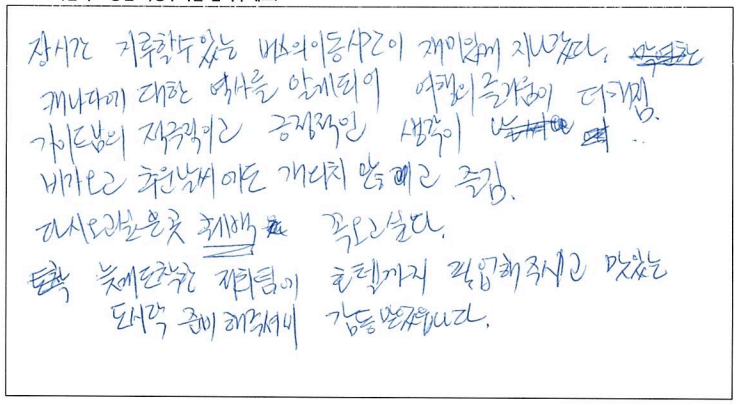 장시간 지루할수있는 버스의이동시간이 재미있게 지나갔다.
캐나다에 대한 역사를 알게되어 여행의 즐거움이 더해짐.
가이드님의 적극적이고 긍정적인 생각이 ..
비가오고 추운날씨에도 개의치 않고 즐김.
다시오고싶은곳 퀘백 꼭오고싶다.
늦게도착한 저희팀이 호텔까지 픽업해주시고 맛있는
도시락 준비해주셔서 감동받았습니다.